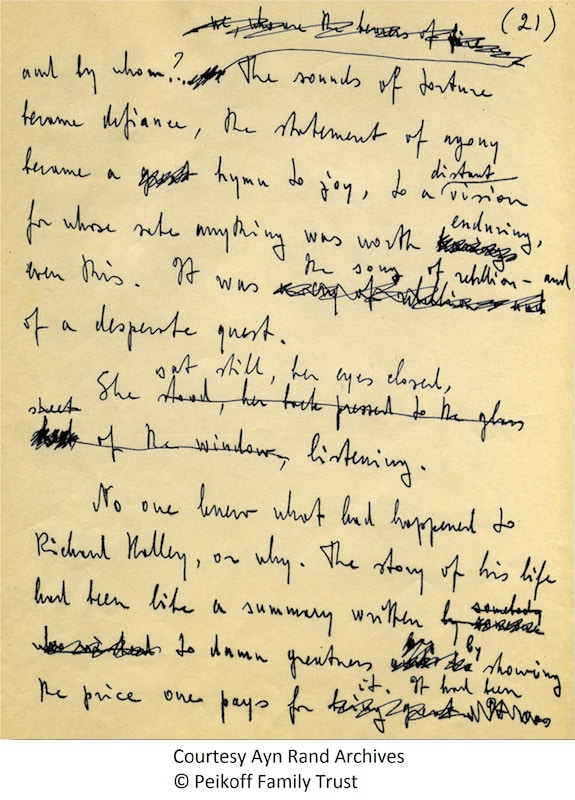 (21)
and by whom? The sounds of torture
became defiance, the statement of agony
became a hymn to joy, to a distant vision
for whose sake anything was worth enduring,
even this. It was the song of rebellion – and
of a desperate quest.
sat still, her eyes closed,
She stood, her back pressed to the glass
sheet of the window, listening.
No one knew what had happened to
Richard Halley, or why. The story of his life
had been like a summary written by somebody
to damn greatness by showing
the price one pays for it. It had been
Courtesy Ayn Rand Archives
© Peikoff Family Trust